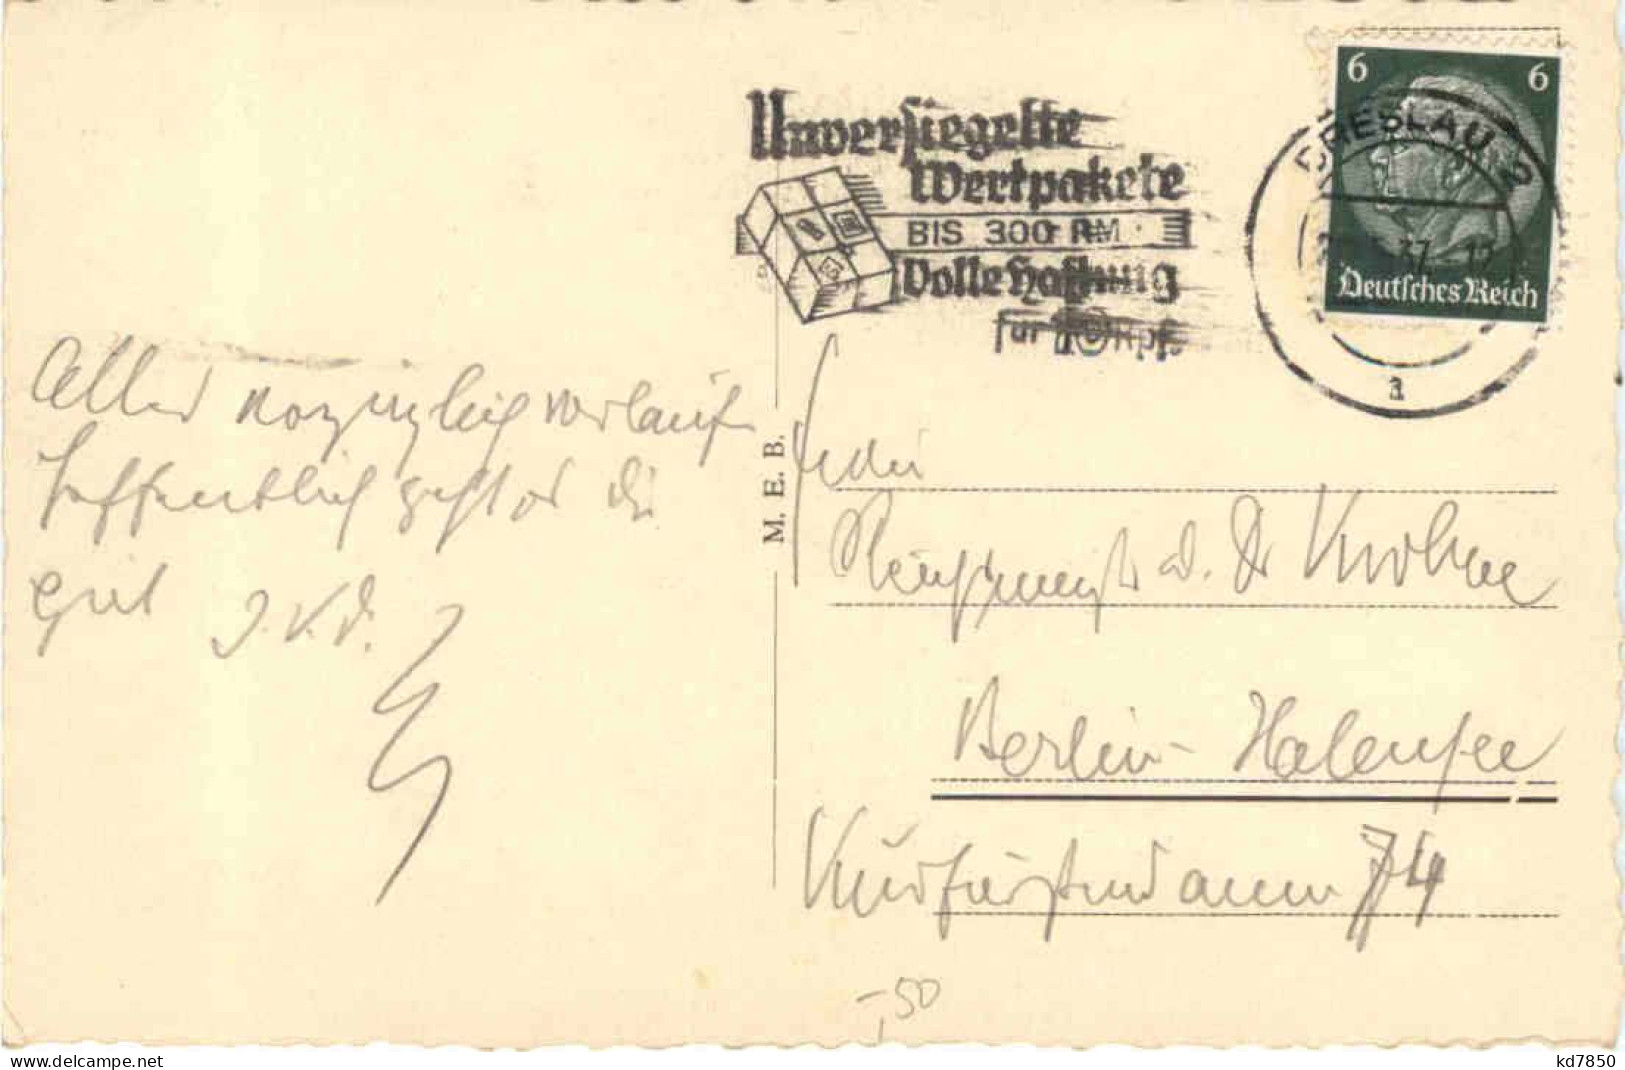 Unversiegelte
Wertpakete
BIS 300 RM
Volle Haftung
für 10 Rpf.
6 6
Deutsches Reich
BRESLAU 2
37. 12
a
Alles vorzüglich verlaufen
hoffentlich geht es dir
gut
M. E. B.
Dr
Berlin-Halensee
Kurfürstendamm 74
-,50
www.delcampe.net
kd7850